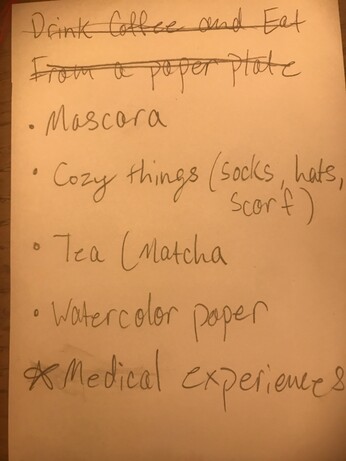 Drink Coffee and Eat
From a paper plate
• Mascara
• Cozy things (socks, hats,
scarf)
• Tea (Matcha
• Watercolor paper
* Medical experiences